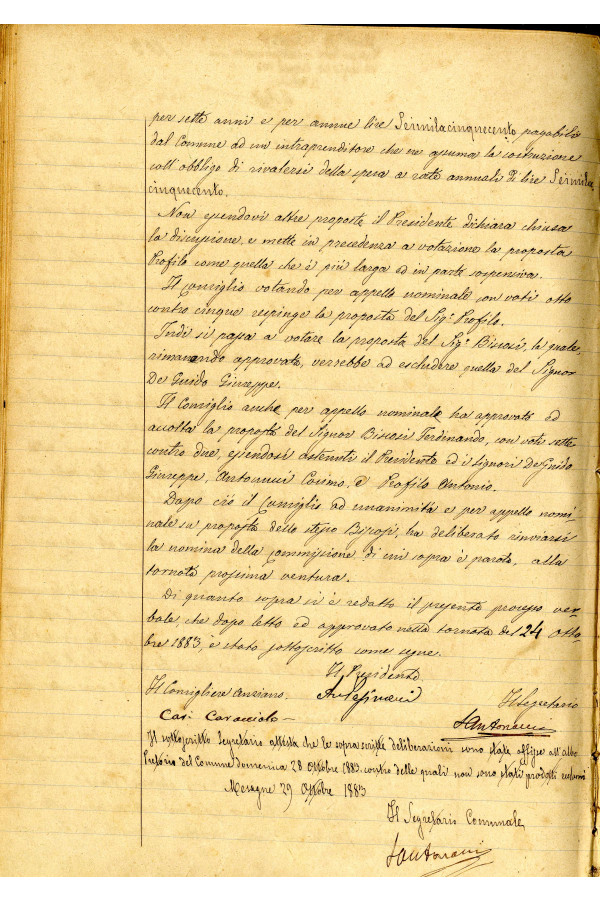 per sette anni e per annue lire Seimilacinquecento pagabili
dal Comune ad un intraprenditore che ne assuma la costruzione
coll'obbligo di rivalersi della spesa a rate annuali di lire Seimila
cinquecento.
Non essendovi altre proposte il Presidente dichiara chiusa
la discussione, e mette in precedenza a votazione la proposta
Profilo come quella che è più larga ed in parte sospensiva.
Il Consiglio votando per appello nominale con voti otto
contro cinque respinge la proposta del Sigr. Profilo.
Indi si passa a votare la proposta del Sigr. Biscosi, la quale,
rimanendo approvata, verrebbe ad escludere quella del Signor
De Guido Giuseppe.
Il Consiglio anche per appello nominale ha approvato ed
accolta la proposta del Signor Biscosi Ferdinando, con voti sette
contro due, essendosi astenuti il Presidente ed i Signori De Guido
Giuseppe, Antonucci Cosmo e Profilo Antonio.
Dopo ciò il Consiglio ad unanimità e per appello nomi=
nale su proposta dello stesso Biscosi, ha deliberato rinviarsi
la nomina della Commissione di cui sopra è parola, alla
tornata prossima ventura.
Di quanto sopra si è redatto il presente processo ver=
bale, che dopo letto ed approvato nella tornata del 24 Otto=
bre 1883, è stato sottoscritto come segue.
Il Presidente
Il Consigliere Anziano. Il Segretario
Casi Caracciolo Santonucci
Il sottoscritto Segretario attesta che le sopra scritte deliberazioni sono state affisse all'albo
Pretorio del Comune domenica 28 Ottobre 1883. contro delle quali non sono stati prodotti reclami
Mesagne 29 Ottobre 1883
Il Segretario Comunale